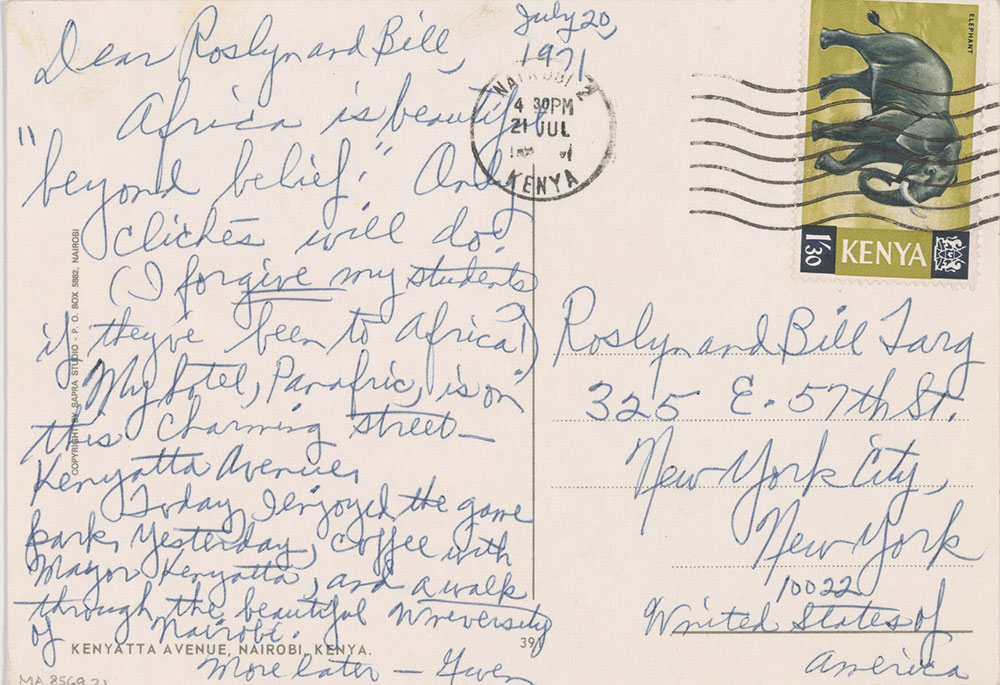 July 20,
1971
Dear Roslyn and Bill,
Africa is beautiful
"beyond belief." Only
clichés will do!
(I forgive my students
if they've been to Africa!)
My hotel, Panafric, is on
this charming street—
Kenyatta Avenue.
Today, I enjoyed the game
park, Yesterday, coffee with
Mayor Kenyatta, and a walk
through the beautiful University
of Nairobi.
More later — Gwen
KENYATTA AVENUE, NAIROBI, KENYA.
391
MA 8569.21
COPYRIGHT BY SAPRA STUDIO - P. O. BOX 5882, NAIROBI
NAIROBI 2
4 30PM
21 JUL
KENYA
ELEPHANT
1/30 KENYA
Roslyn and Bill Targ
325 E. 57th St.
New York City,
New York
10022
United States of
America